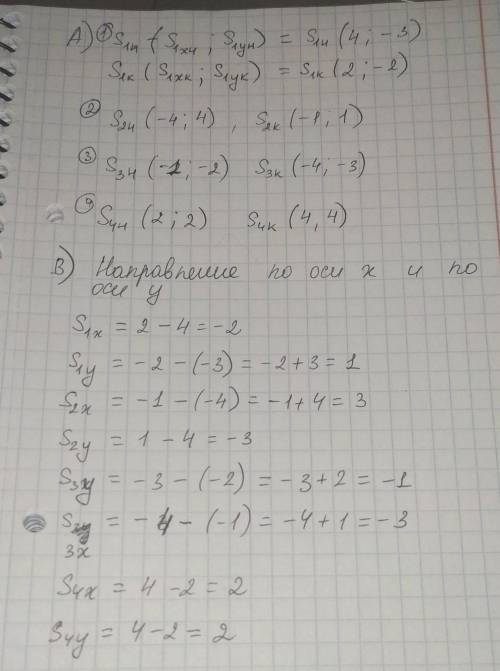 А) ① S₁н (S₁хн ; S₁ун) = S₁н (4 ; -3)
S₁к (S₁хк ; S₁ук) = S₁к (2 ; -2)
② S₂н (-4 ; 4) , S₂к (-1 ; 1)
③ S₃н (-1 ; -2) S₃к (-4 ; -3)
④ S₄н (2 ; 2) S₄к (4, 4)
В) Направление по оси х и по
оси у
S₁х = 2 - 4 = -2
S₁у = -2 - (-3) = -2 + 3 = 1
S₂х = -1 - (-4) = -1 + 4 = 3
S₂у = 1 - 4 = -3
S₃у = -3 - (-2) = -3 + 2 = -1
S = -4 - (-1) = -4 + 1 = -3
3х
S₄х = 4 - 2 = 2
S₄у = 4 - 2 = 2